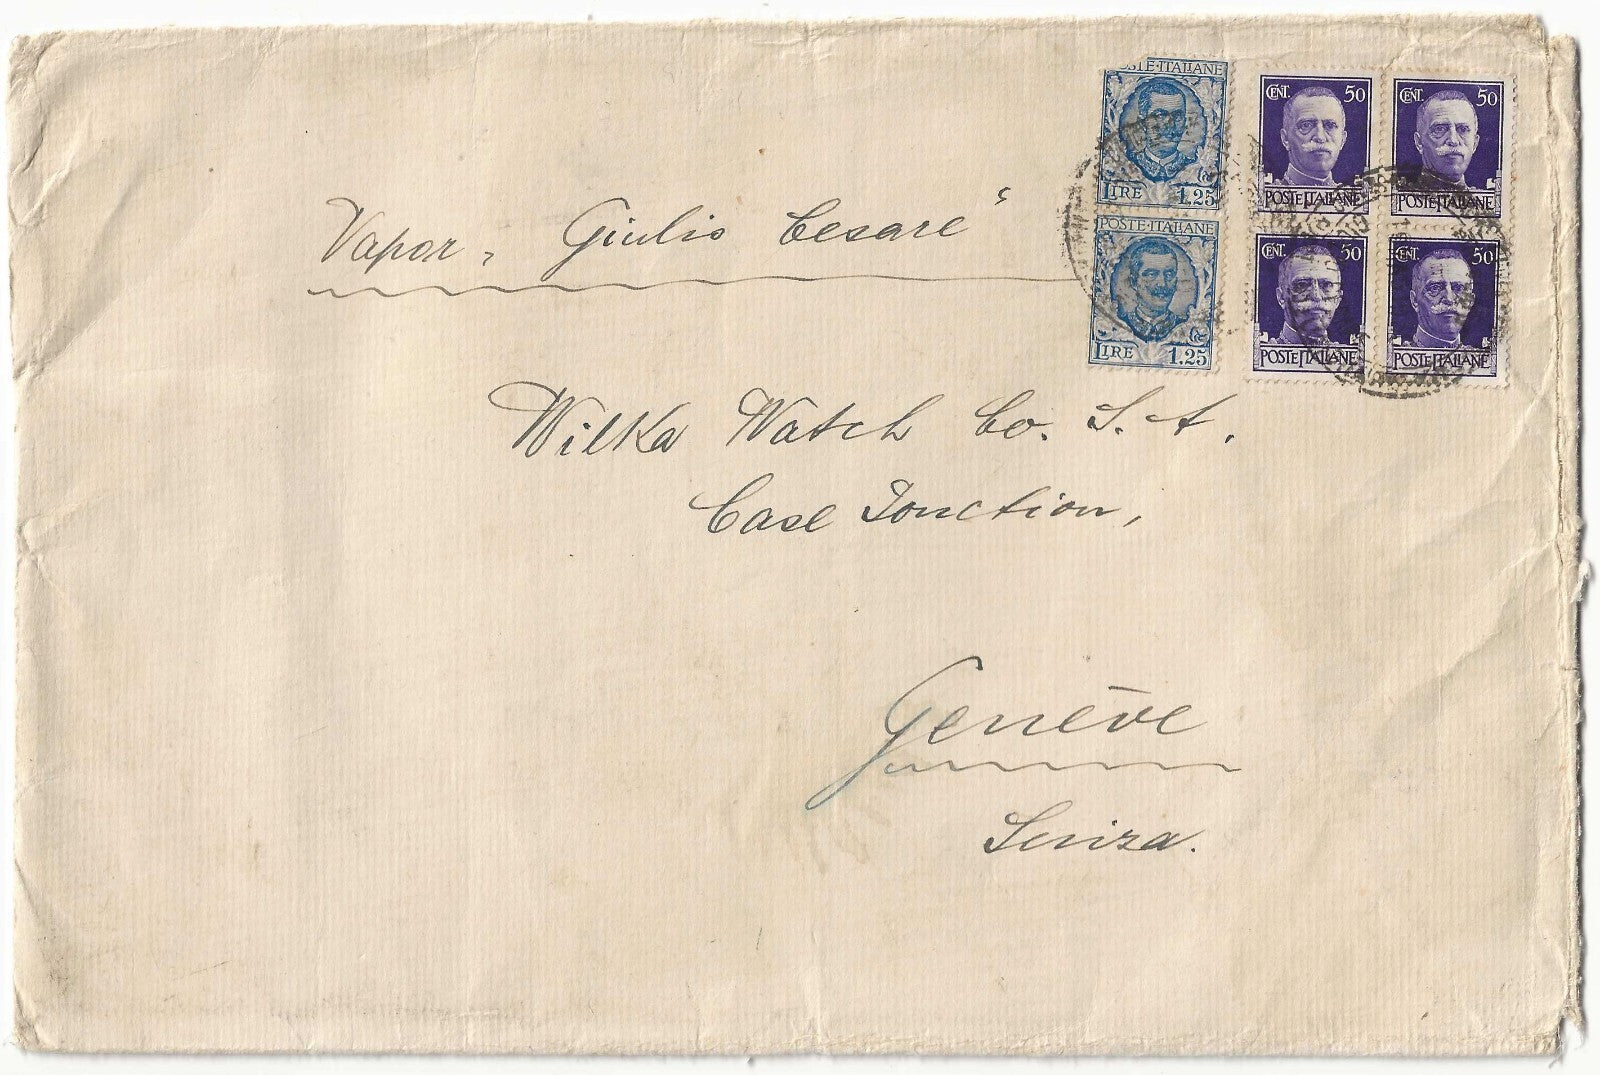 POSTE·ITALIANE
LIRE 1.25
POSTE·ITALIANE
LIRE 1.25
CENT. 50
POSTE ITALIANE
CENT. 50
POSTE ITALIANE
CENT. 50
POSTE ITALIANE
CENT. 50
POSTE ITALIANE
Vapor „Giulio Cesare“
Wilka Watch Co. S. A.
Case Jonction,
Genève
Suiza.